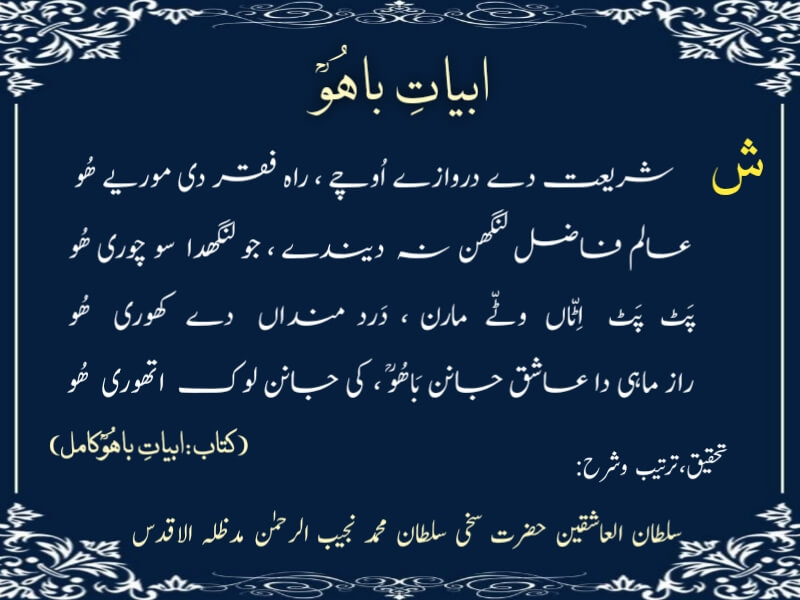 ابیاتِ باھُوؒ
ش
شریعت دے دروازے اُوچے ، راہ فقر دی موریے ھُو
عالم فاضل لنگھن نہ دیندے ، جو لنگھدا سو چوری ھُو
پَٹ پَٹ اِٹّاں وٹّے مارن ، دَرد منداں دے کھوری ھُو
راز ماہی دا عاشق جانن بَاھُوؒ ، کی جانن لوک اتھوری ھُو
(کتاب: ابیاتِ باھُوؒ کامل)
تحقیق، ترتیب وشرح:
سلطان العاشقین حضرت سخی سلطان محمد نجیب الرحمٰن مدظلہ الاقدس